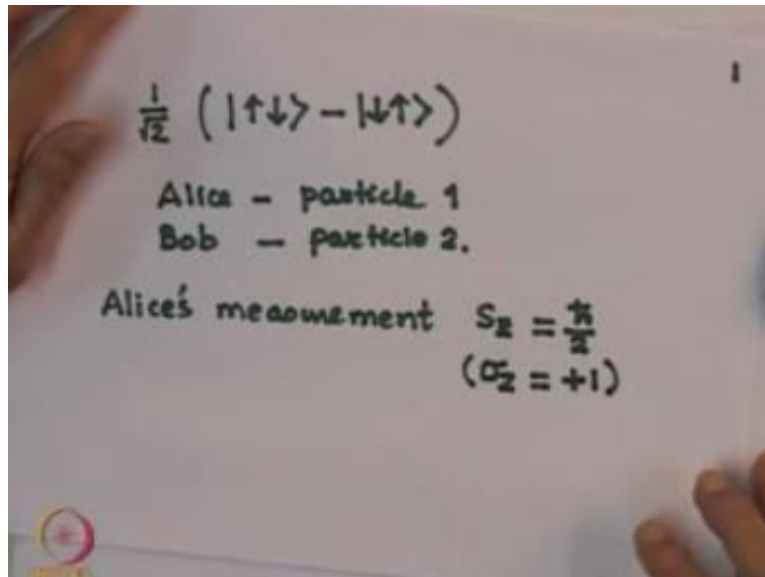 1
1/√2 (|↑↓⟩ − |↓↑⟩)
Alice – particle 1
Bob – particle 2.
Alice's measurement S_z = ħ/2
(σ_z = +1)